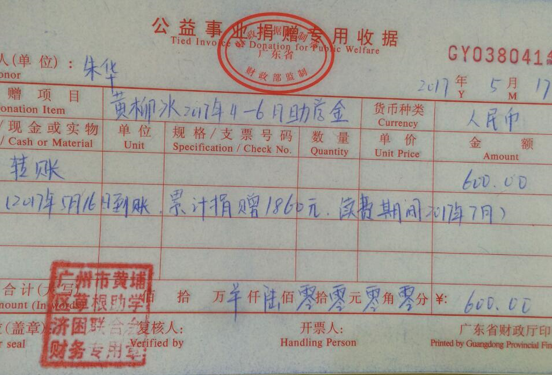 公益事业捐赠专用收据
Tied Invoice of Donation for Public Welfare
广东省
财政部监制
GY038041
人(单位): 朱华
onor
2017年 5月 17
Y M
赠项目 黄柳冰2017年4-6月助学金 货币种类 人民币
onation Item Currency
现金或实物 单位 规格/支票号码 数量 单价 金额
Cash or Material Unit Specification/Check No. Quantity Unit Price Amount
转账 600.00
(2017年5月16日到账,累计捐赠1860元,续费期间2017年7月)
合计(大写) 佰 拾 万 羊 仟 陆 佰 零 拾 零 元 零 角 零 分 ¥: 600.00
mount (In words)
(盖章) 复核人: 开票人: 广东省财政厅印
r seal Verified by Handling Person Printed by Guangdong Provincial Fin
广州市黄埔
区草根助学
济困联合会
财务专用章